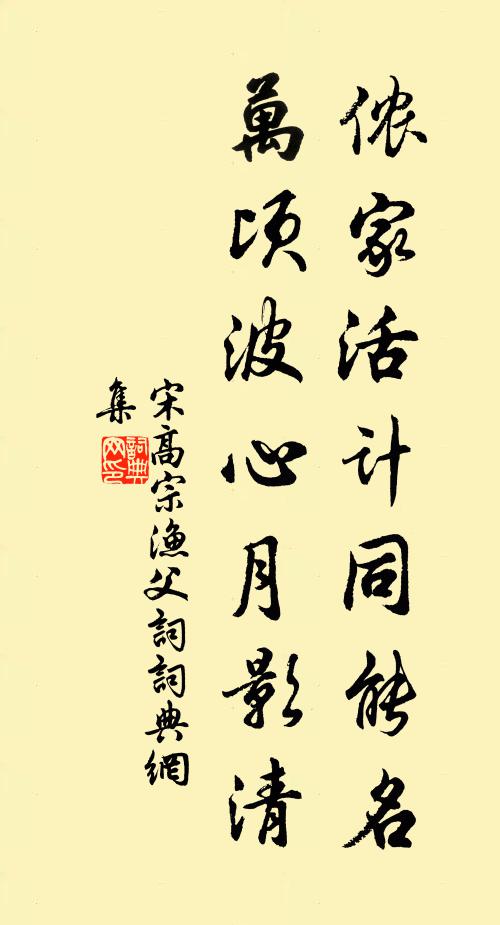 侬家活计同能名
萬顷波心月影清
宋高宗渔父詞詞典網
集
詞典网印